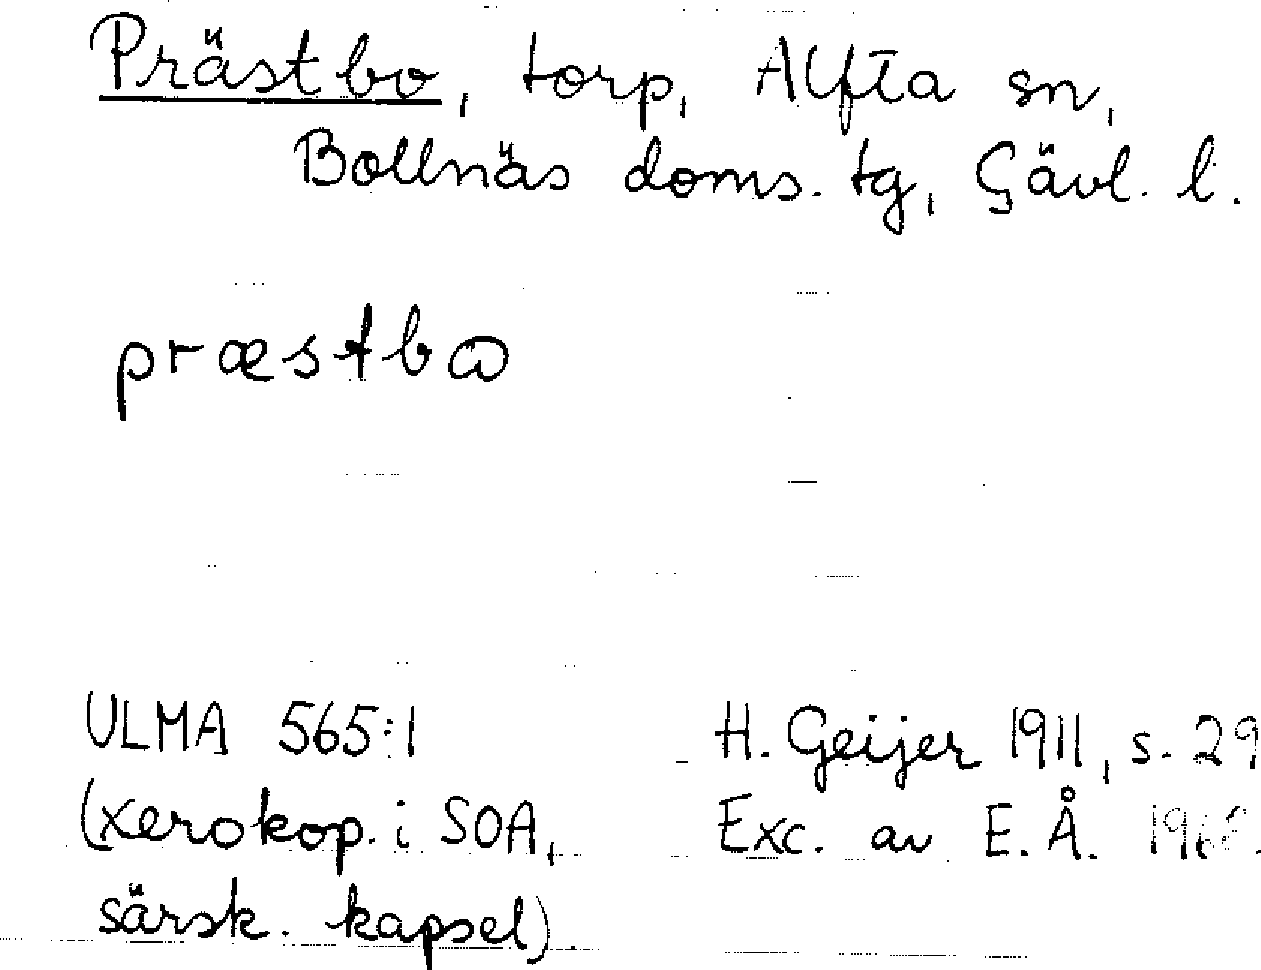 Prästbo, torp, Alfta sn,
Bollnäs doms. tg, Gävl. l.
præstbɷ
ULMA 565:1
H. Geijer 1911, s. 29
(xerokop. i SOA,
Exc. av E. Å.
särsk. kapsel).